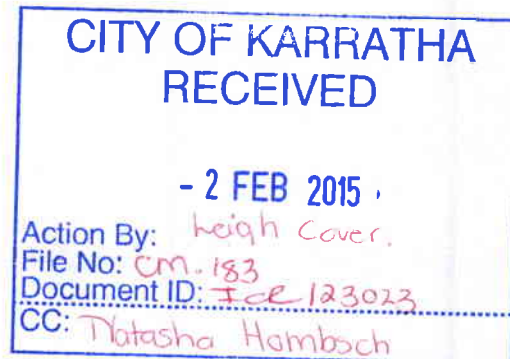 CITY OF KARRATHA
RECEIVED
- 2 FEB 2015
Action By: Leigh Cover.
File No: CM.183
Document ID: Ice 123023
CC: Natasha Hombsch